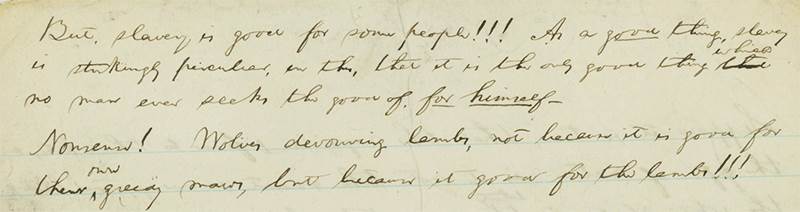 But, slavery is good for some people!!! As a good thing, slavery
is strikingly perculiar, in this, that it is the only good thing which that
no man ever seeks the good of, for himself—
Nonsense! Wolves devouring lambs, not because it is good for
their own greedy maws, but because it good for the lambs!!!